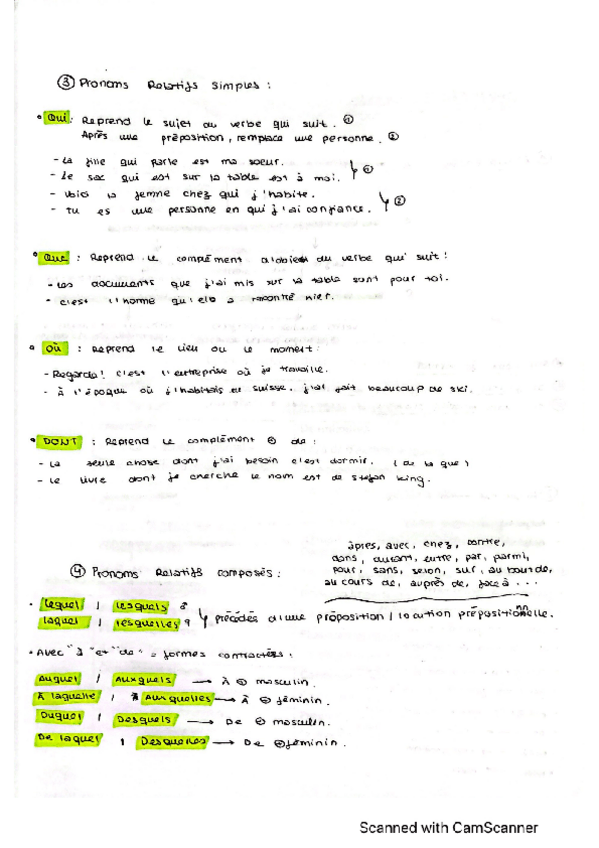 ③ Pronoms Relatifs simples :
• Qui : Reprend le sujet du verbe qui suit. ①
Après une préposition, remplace une personne. ②
- La fille qui parle est ma soeur.
- Le sac qui est sur la table est à moi. ①
- Voici la femme chez qui j'habite.
- Tu es une personne en qui j'ai confiance. ②
• Que : Reprend le complément d'objet du verbe qui suit :
- Les documents que j'ai mis sur la table sont pour toi.
- C'est l'homme qu'elle a rencontré hier.
• Où : Reprend le lieu ou le moment :
- Regarde! C'est l'entreprise où je travaille.
- À l'époque où j'habitais en suisse, j'ai fait beaucoup de ski.
• DONT : Reprend le complément ⊕ de :
- La seule chose dont j'ai besoin c'est dormir. (de la que)
- Le livre dont je cherche le nom est de Stefan King.
④ Pronoms Relatifs composés :
après, avec, chez, contre,
dans, durant, entre, par, parmi,
pour, sans, selon, sur, au bout de,
au cours de, auprès de, face à ...
• Lequel / lesquels ♂
laquel / lesquelles ♀ précédés d'une préposition / locution prépositionnelle.
• Avec "à" et "de" = formes contractés :
Auquel / Auxquels → À ⊕ masculin.
À laquelle / Auxquelles → À ⊕ féminin.
Duquel / Desquels → De ⊕ masculin.
De laquel / Desquelles → De ⊕ féminin.
Scanned with CamScanner